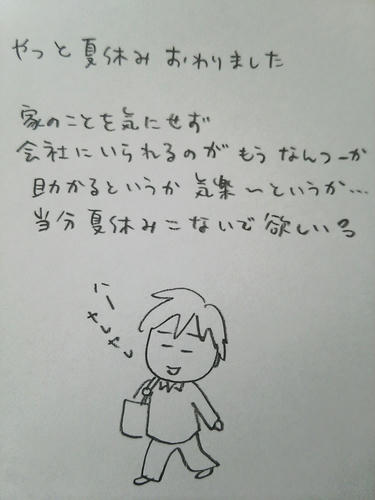 やっと夏休みおわりました
家のことを気にせず
会社にいられるのがもうなんつーか
助かるというか気楽〜というか…
当分夏休みこないで欲しい
にー
ヤレヤレ